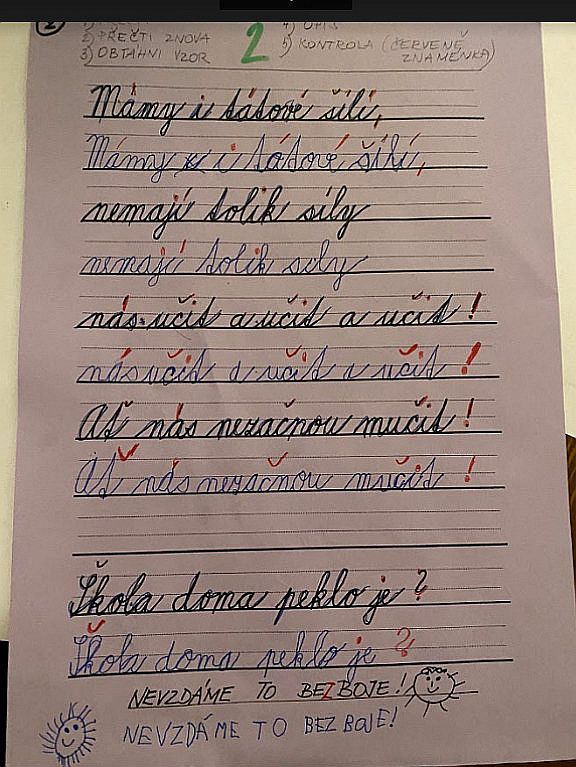 2
2) PŘEČTI ZNOVA
3) OBTÁHNI VZOR
2
4) OPIŠ
5) KONTROLA (ČERVENĚ ZNAMÉNKA)
Mámy i tátové šílí,
Mámy i tátové šílí,
nemají tolik síly
nemají tolik sily
nás učit a učit a učit!
nás učit a učit a učit!
Ať nás nezačnou mučit!
Ať nás nezačnou mučit!
Škola doma peklo je?
Škola doma peklo je?
NEVZDÁME TO BEZ BOJE!
NEVZDÁME TO BEZ BOJE!